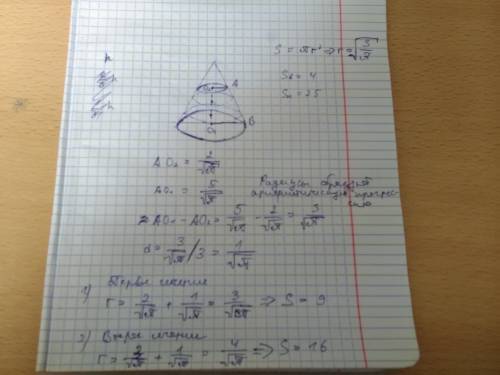 S = πr² => r = √(S/π)
S₁ = 4
S₂ = 25
A
B
AO₁ = 2/√π
AO₂ = 5/√π
Радиусы образуют
арифметическую прогрес-
сию
AO₁ - AO₂ = 5/√π - 2/√π = 3/√π
d = 3/√π /3 = 1/√π
1) Первое сечение
r = 2/√π + 1/√π = 3/√π => S = 9
2) Второе сечение
r = 3/√π + 1/√π = 4/√π => S = 16